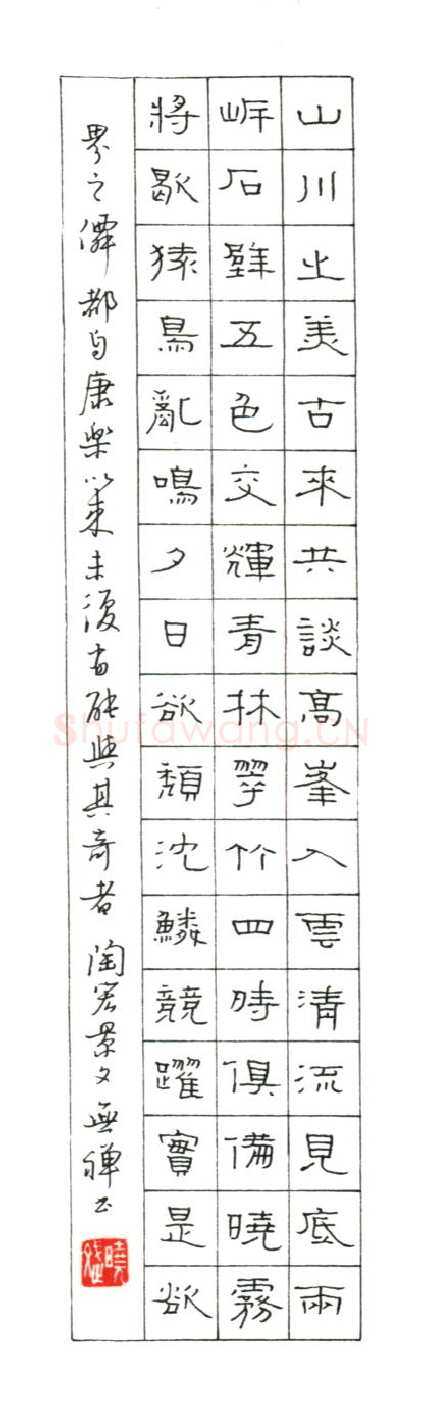 山川之美古來共談髙峯入雲清流見底兩
岸石壁五色交輝青林翠竹四時俱備曉霧
將歇猿鳥亂鳴夕日欲頹沈鱗競躍實是欲
界之僊都自康樂以来未復有能與其奇者 陶宏景文 無禅书
Shufawang.CN